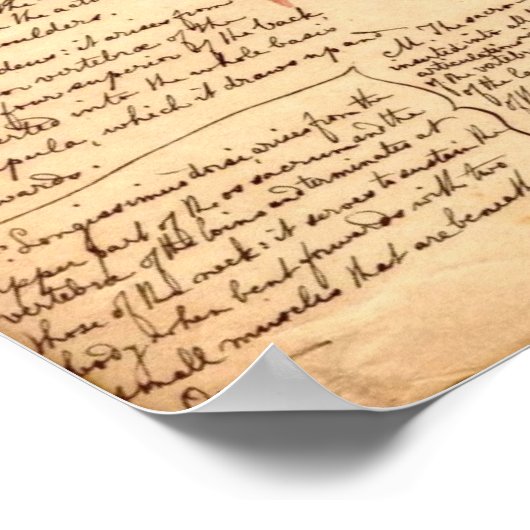 the
shoulders.
deus: it arises from
vertebrae of the
four superior of the back
into the whole basis
pula, which it draws up and
wards.
M. The sacro
inserted into all
articulation
of the vertebra
of the
of
Longissimus dorsi, arises from the
upper part of the os sacrum and the
vertebra of the loins and terminates at
those of the neck: it serves to sustain the
body when bent forwards with two
small muscles that are beneath